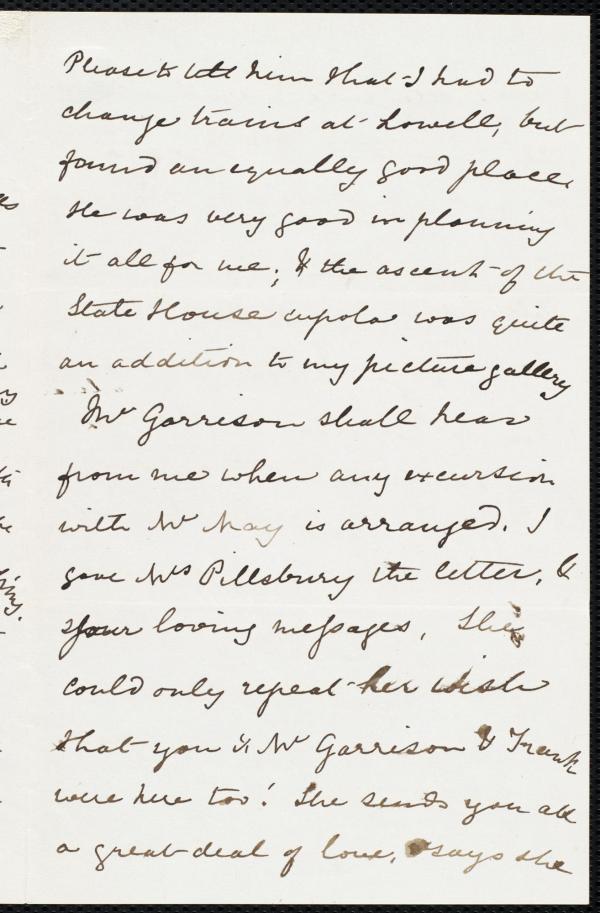 Please to tell him that I had to
change trains at Lowell, but
found an equally good place.
He was very good in planning
it all for me; & the ascent of the
State House cupola was quite
an addition to my picture gallery
Mr Garrison shall hear
from me when any excursion
with Mr May is arranged. I
gave Mrs Pillsbury the letter, &
your loving messages, She
could only repeat her wish
that you & Mr Garrison & Frank
were here too! She sends you all
a great deal of love, says she